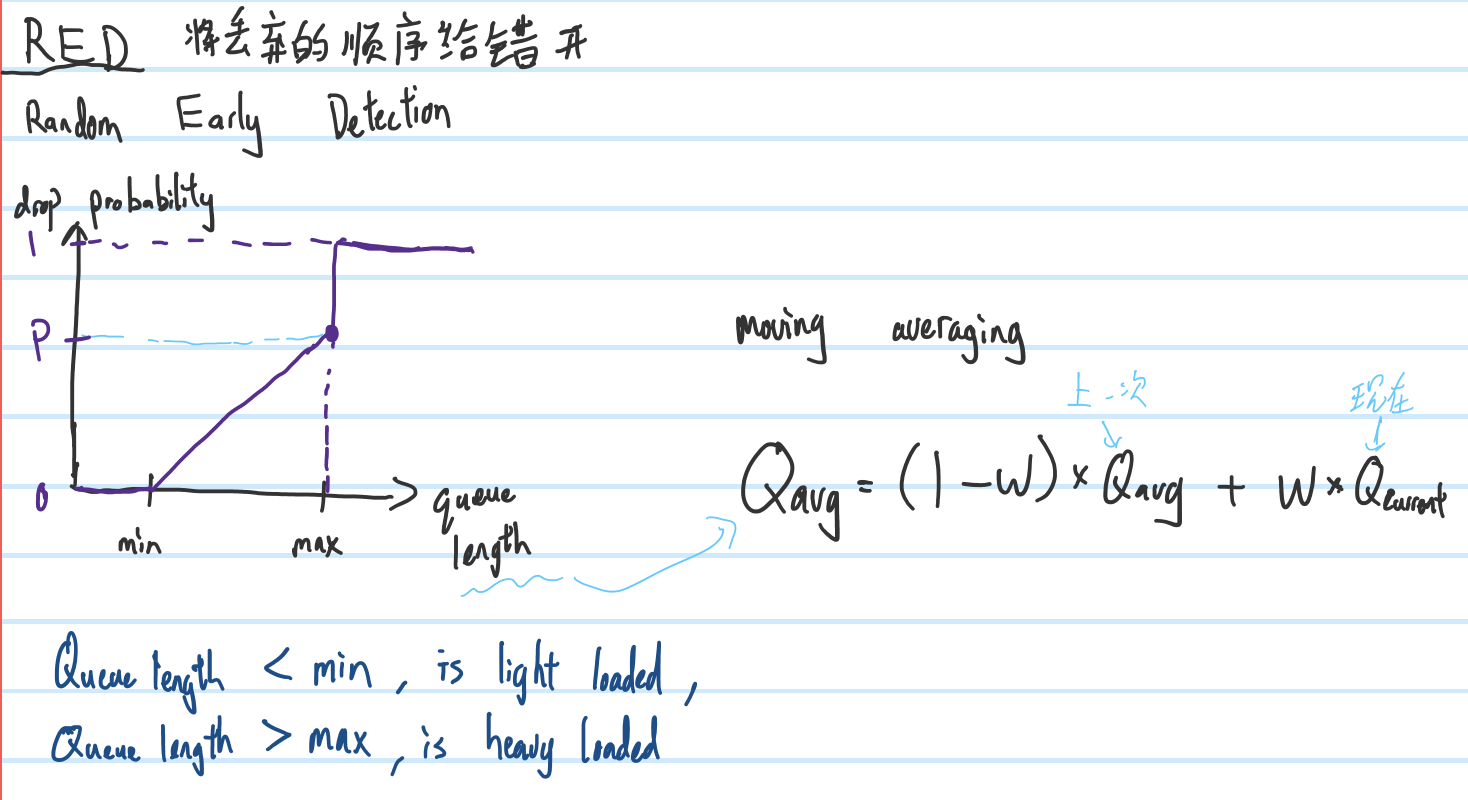 RED 将丢弃的顺序给错开
Random Early Detection
drop probability
1
P
0
min
max
queue
length
moving averaging
上一次
现在
Qavg = (1-W) × Qavg + W × Qcurrent
Queue length < min, is light loaded,
Queue length > max, is heavy loaded